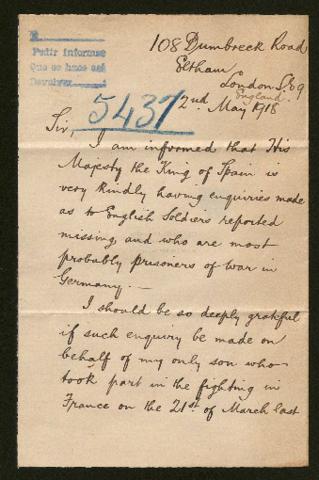 Pedir informes
Que se hace así
Devolver
5437
108 Dumbreck Road
Eltham
London S.E.9
England.
2nd May 1918
Sir,
I am informed that His
Majesty the King of Spain is
very kindly having enquiries made
as to English Soldiers reported
missing and who are most
probably prisoners of war in
Germany.—
I should be so deeply grateful
if such enquiry be made on
behalf of my only son who
took part in the fighting in
France on the 21st of March last